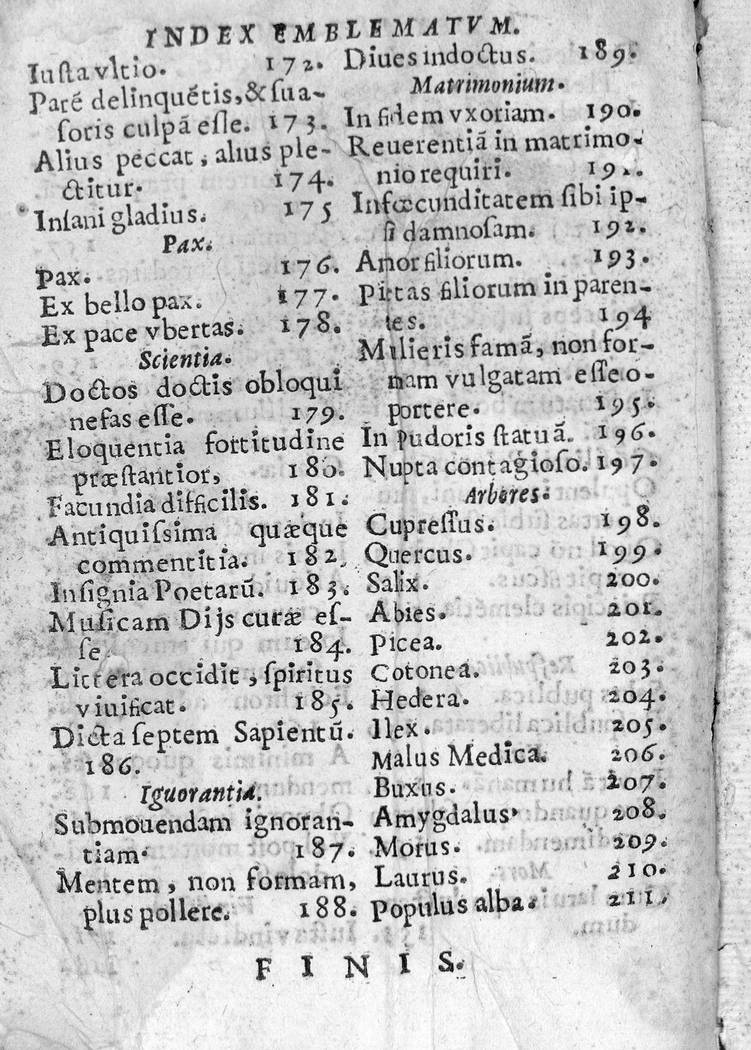 INDEX EMBLEMATVM.
Iusta vltio. 172.
Parẽ delinquẽtis, & sua-
soris culpã esse. 173.
Alius peccat, alius ple-
ctitur. 174.
Insani gladius. 175
Pax.
Pax. 176.
Ex bello pax. 177.
Ex pace vbertas. 178.
Scientia.
Doctos doctis obloqui
nefas esse. 179.
Eloquentia fortitudine
præstantior, 180.
Facundia difficilis. 181.
Antiquissima quæque
commentitia. 182.
Insignia Poetarũ. 183.
Musicam Dijs curæ es-
se. 184.
Littera occidit, spiritus
viuificat. 185.
Dicta septem Sapientũ.
186.
Iguorantia.
Submouendam ignoran-
tiam. 187.
Mentem, non formam,
plus pollere. 188.
Diues indoctus. 189.
Matrimonium.
In fidem vxoriam. 190.
Reuerentiã in matrimo-
nio requiri. 191.
Infœcunditatem sibi ip-
si damnosam. 192.
Amor filiorum. 193.
Pietas filiorum in paren-
tes. 194
Mulieris famã, non for-
mam vulgatam esse o-
portere. 195.
In pudoris statuã. 196.
Nupta contagioso. 197.
Arbores.
Cupressus. 198.
Quercus. 199.
Salix. 200.
Abies. 201.
Picea. 202.
Cotonea. 203.
Hedera. 204.
Ilex. 205.
Malus Medica. 206.
Buxus. 207.
Amygdalus, 208.
Morus. 209.
Laurus. 210.
Populus alba. 211.
FINIS.